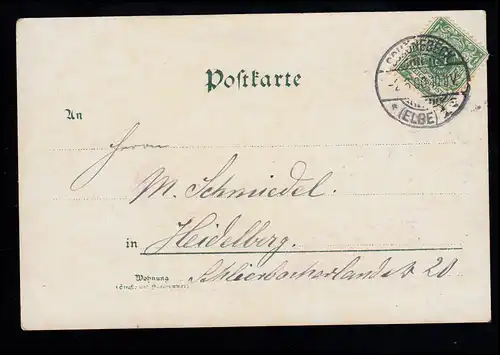 SCHÖNEBECK
* (ELBE) *
Postkarte
An
Herrn
M. Schmiedel.
in Heidelberg.
Wohnung
(Straße und Hausnummer)
Schlierbacherlandstr. 20